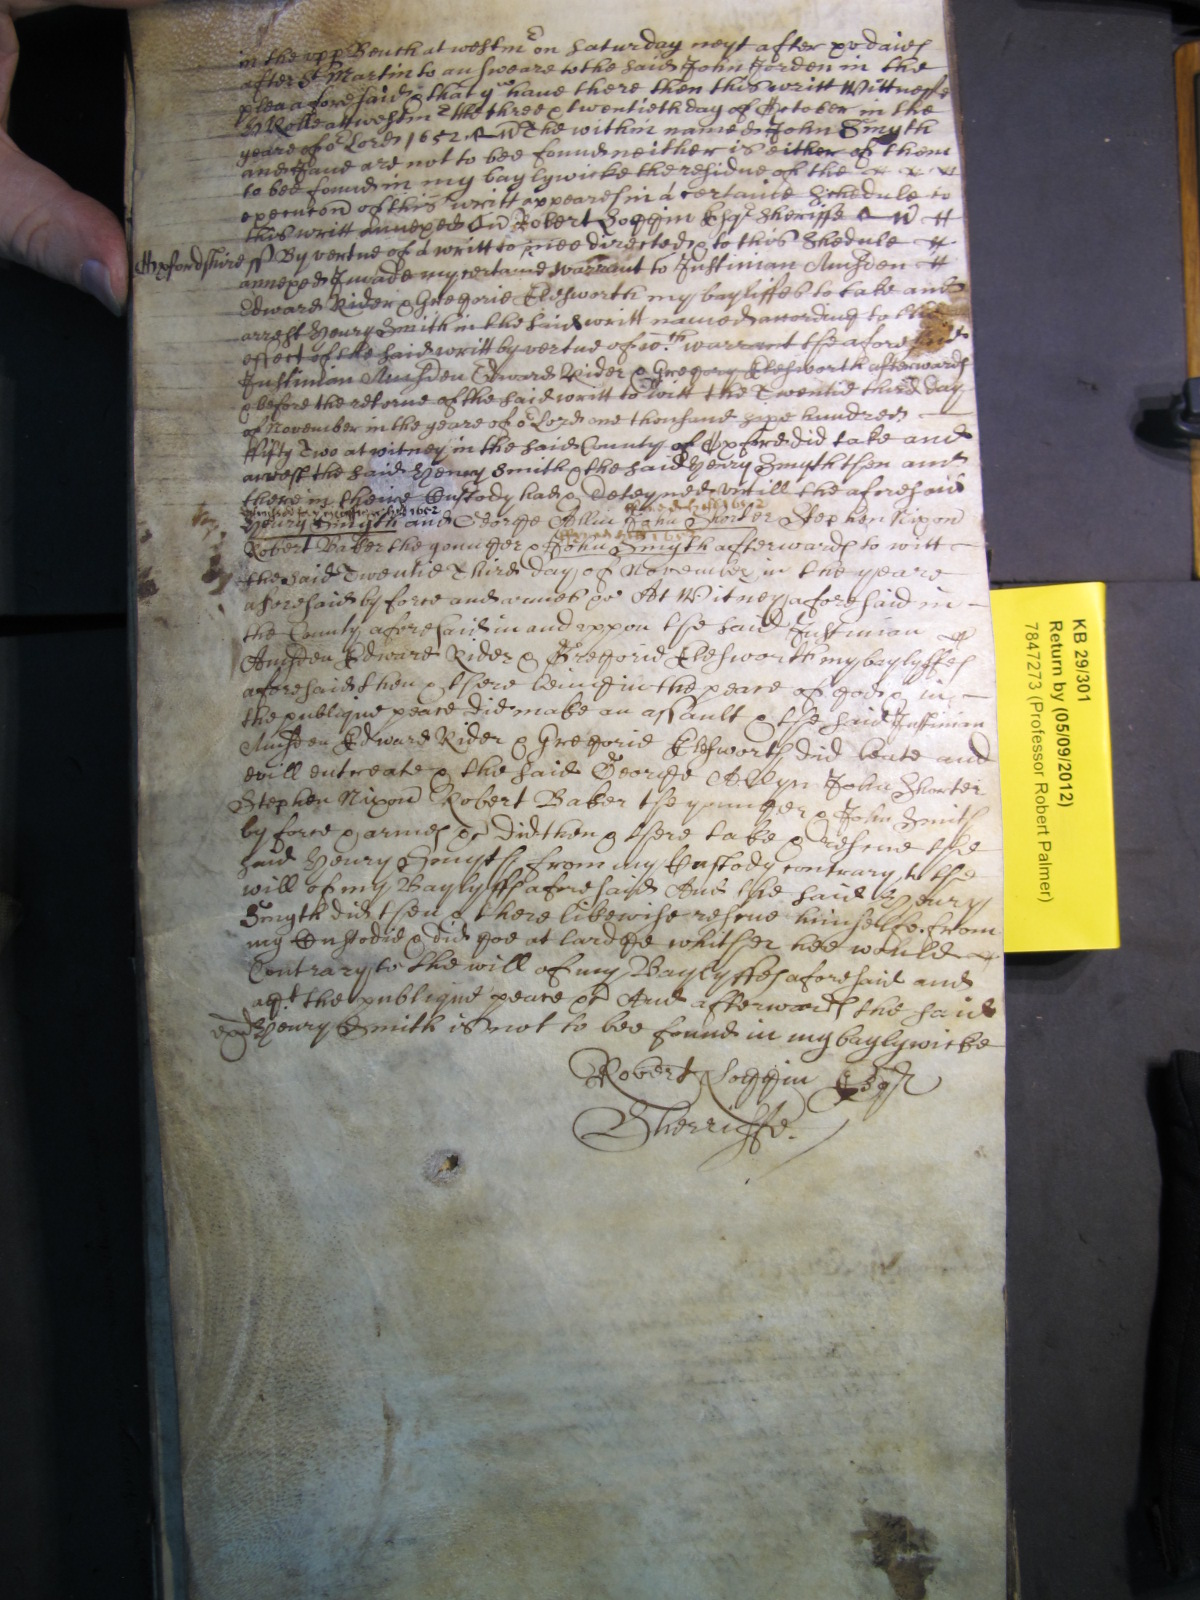 in the upp Bench at westmr on Saturday next after xv daies
after St Martin to answeare to the said John Jorden in the
plea aforesaid & that yu have there then this writt Wittnesse
H Rolle at westmr the three & twentieth day of October in the
yeare of or Lord 1652 The within named John Smyth
and Jane are not to bee found neither is either of them
to bee found in my baylywicke the residue of the
execucon of this writt appeares in a certaine Schedule to
this writt annexed Robert Loggin Esqr Sheriffe
Oxfordshire ss By vertue of a writt to mee directed & to this Shedule
annexed I made my certaine warrant to Justinian Aushden
Edward Rider & Gregorie Elesworth my bayliffes to take and
arrest Henry Smith in the said writt named according to the
effect of the said writt by vertue of wch warrant the aforesaid
Justinian Aushden Edward Rider & Gregory Elesworth afterwards
& before the retorne of the said writt to witt the Twentie third day
of November in the yeare of or Lord one thousand sixe hundred
ffifty Two at witney in the said County of Oxford did take and
arrest the said Henry Smith & the said Henry Smyth then and
there in theire Custody had & deteyned untill the aforesaid
1652
1652
Henry Smyth and George Allin John Shorter Stephen Nixon
Robert Baker the younger & John Smyth afterwards to witt
the said Twentie Third day of November in the yeare
aforesaid by force and armes &c At Witney aforesaid in
the County aforesaid in and uppon the said Justinian
Aushden Edward Rider & Gregorie Elesworth my baylyffes
aforesaid then & there being in the peace of god & in
the publique peace did make an assault & the said Justinian
Aushden Edward Rider & Gregorie Elesworth did beate and
evill entreate & the said George Allyn John Shorter
Stephen Nixon Robert Baker the younger & John Smith
by force & armes &c did then & there take & rescue the
said Henry Smyth from my Custody contrary to the
will of my Baylyffs aforesaid And the said Henry
Smyth did then & there likewise rescue himselfe from
my Custodie & did goe at lardge whither hee would
Contrary to the will of my Baylyffes aforesaid and
agt the publique peace &c And afterwards the said
Henry Smith is not to bee found in my baylywicke
Robert Loggin Esqr
Sherriffe.
KB 29/301
Return by (05/09/2012)
7847273 (Professor Robert Palmer)